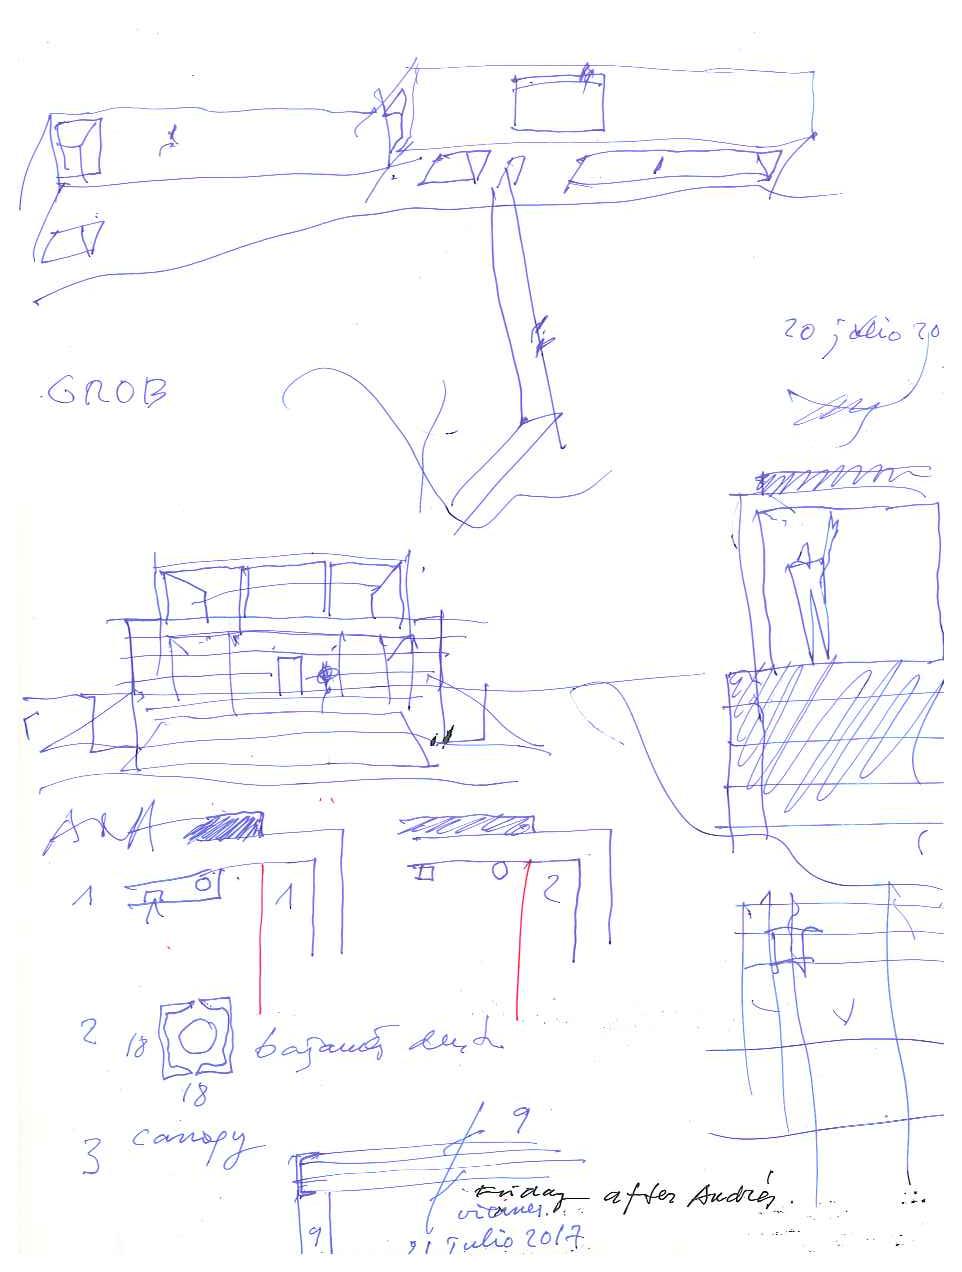 20 julio 20
GROB
ANA
1
1
2
2
18
18
bajantes
3
canopy
9
9
Friday after Andrés.
viernes
21 Julio 2017